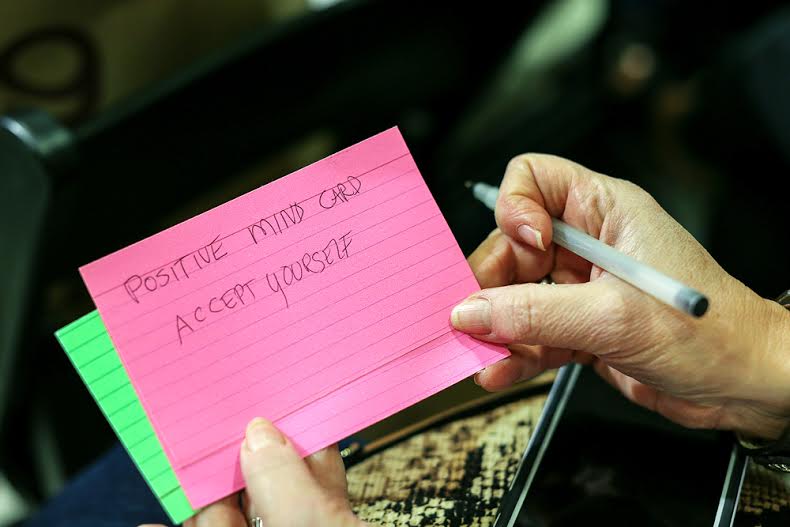 POSITIVE MIND CARD
ACCEPT YOURSELF